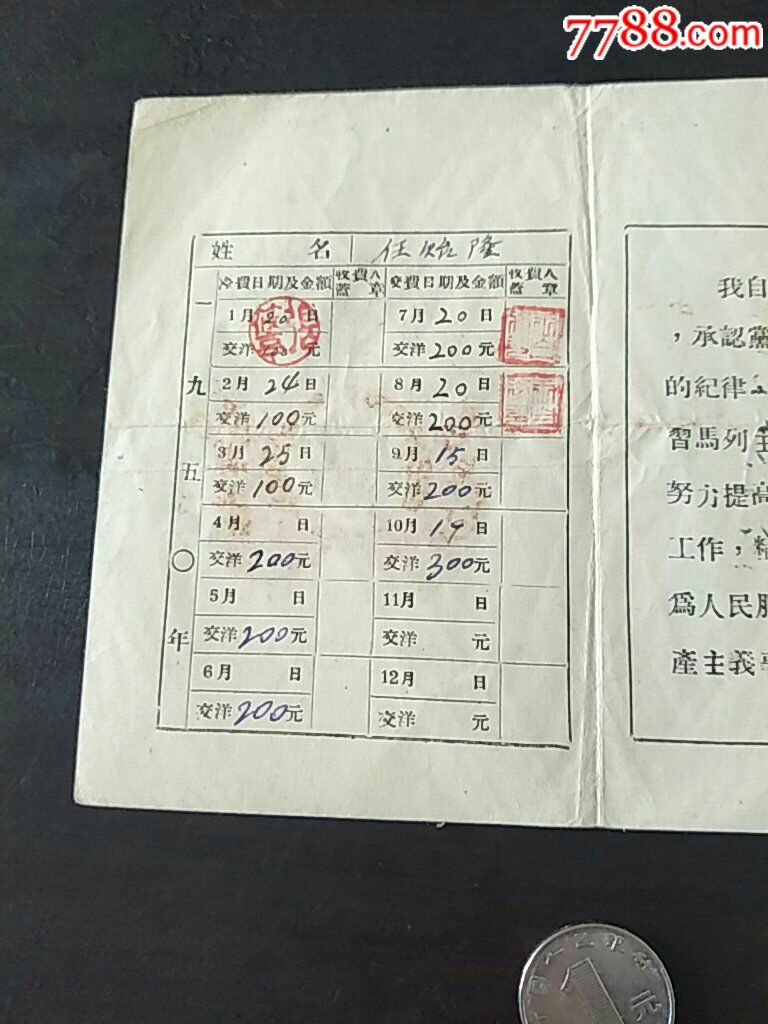 7788.com
姓 名 任 隆
一九五〇年
交費日期及金額 收費人蓋章 交費日期及金額 收費人蓋章
1月20日 7月20日
交洋 元 交洋200元
2月24日 8月20日
交洋100元 交洋200元
3月25日 9月15日
交洋100元 交洋200元
4月 日 10月19日
交洋200元 交洋300元
5月 日 11月 日
交洋200元 交洋 元
6月 日 12月 日
交洋200元 交洋 元
我自
，承認黨
的紀律
習馬列主
努力提高
工作，精
爲人民服
產主義事